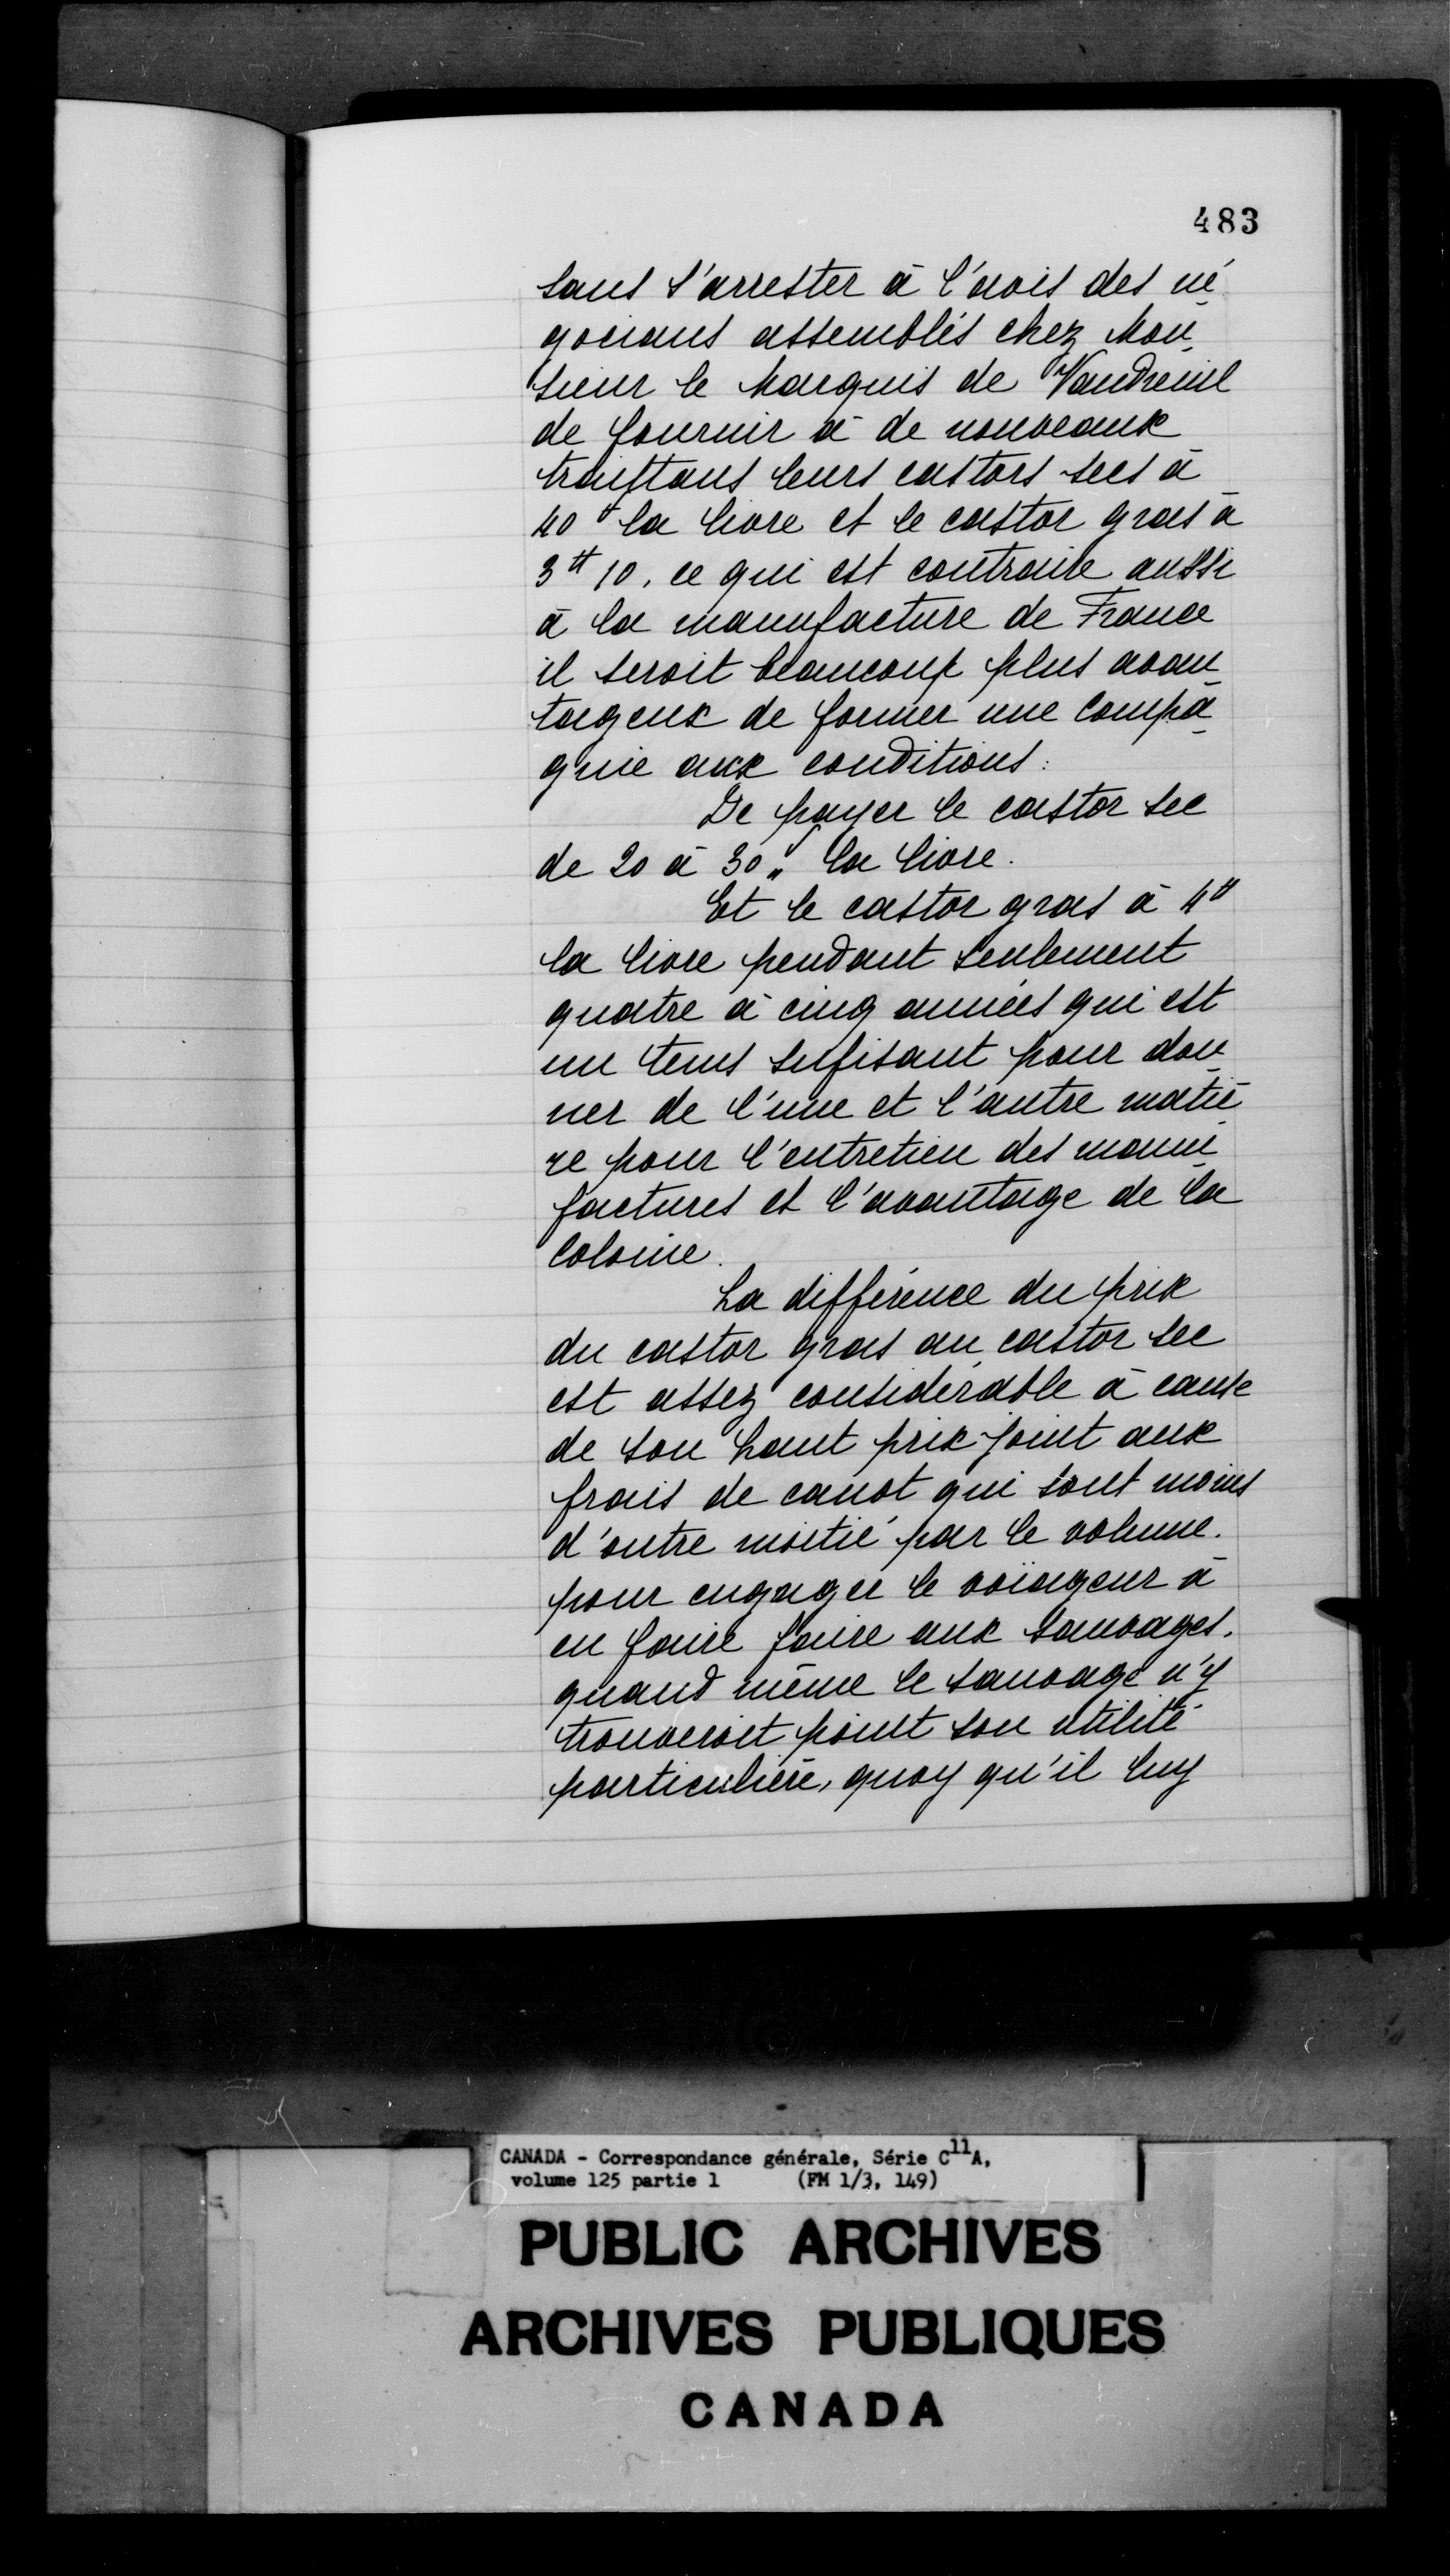 483
sans s'arrester à l'avis des né-
gocians assemblés chez Mon-
sieur le Marquis de Vaudreuil
de fournir à de nouveaux
traittans leurs castors secs à
40 s la livre et le castor gras à
3tt 10. ce qui est contraire aussi
à la manufacture de France
il seroit beaucoup plus avan-
tageux de former une compa-
gnie aux conditions:
De payer le castor sec
de 20 à 30 s la livre.
Et le castor gras à 4tt
la livre pendant seulement
quatre à cinq années qui est
un tems sufisant pour don-
ner de l'une et l'autre matiè-
re pour l'entretien des manu-
factures et l'avantage de la
Colonie.
La différence du prix
du castor gras au castor sec
est assez considérable à cause
de son haut prix joint aux
frais de canot qui sont moins
d'outre moitié par le volume.
pour engager le voïageur à
en faire faire aux sauvages.
quand même le sauvage n'y
trouveroit point son utilité
particulière, quoy qu'il luy
CANADA - Correspondance générale, Série C11A,
volume 125 partie 1 (FM 1/3, 149)
PUBLIC ARCHIVES
ARCHIVES PUBLIQUES
CANADA